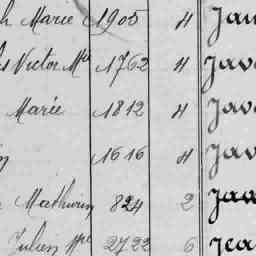 Marie 1905 4 Jan
Victor Mie 1762 4 Jav
Marie 1812 4 Jav
1616 4 Jav
Mathurin 824 2 Jaw
Julien 2722 6 Jea